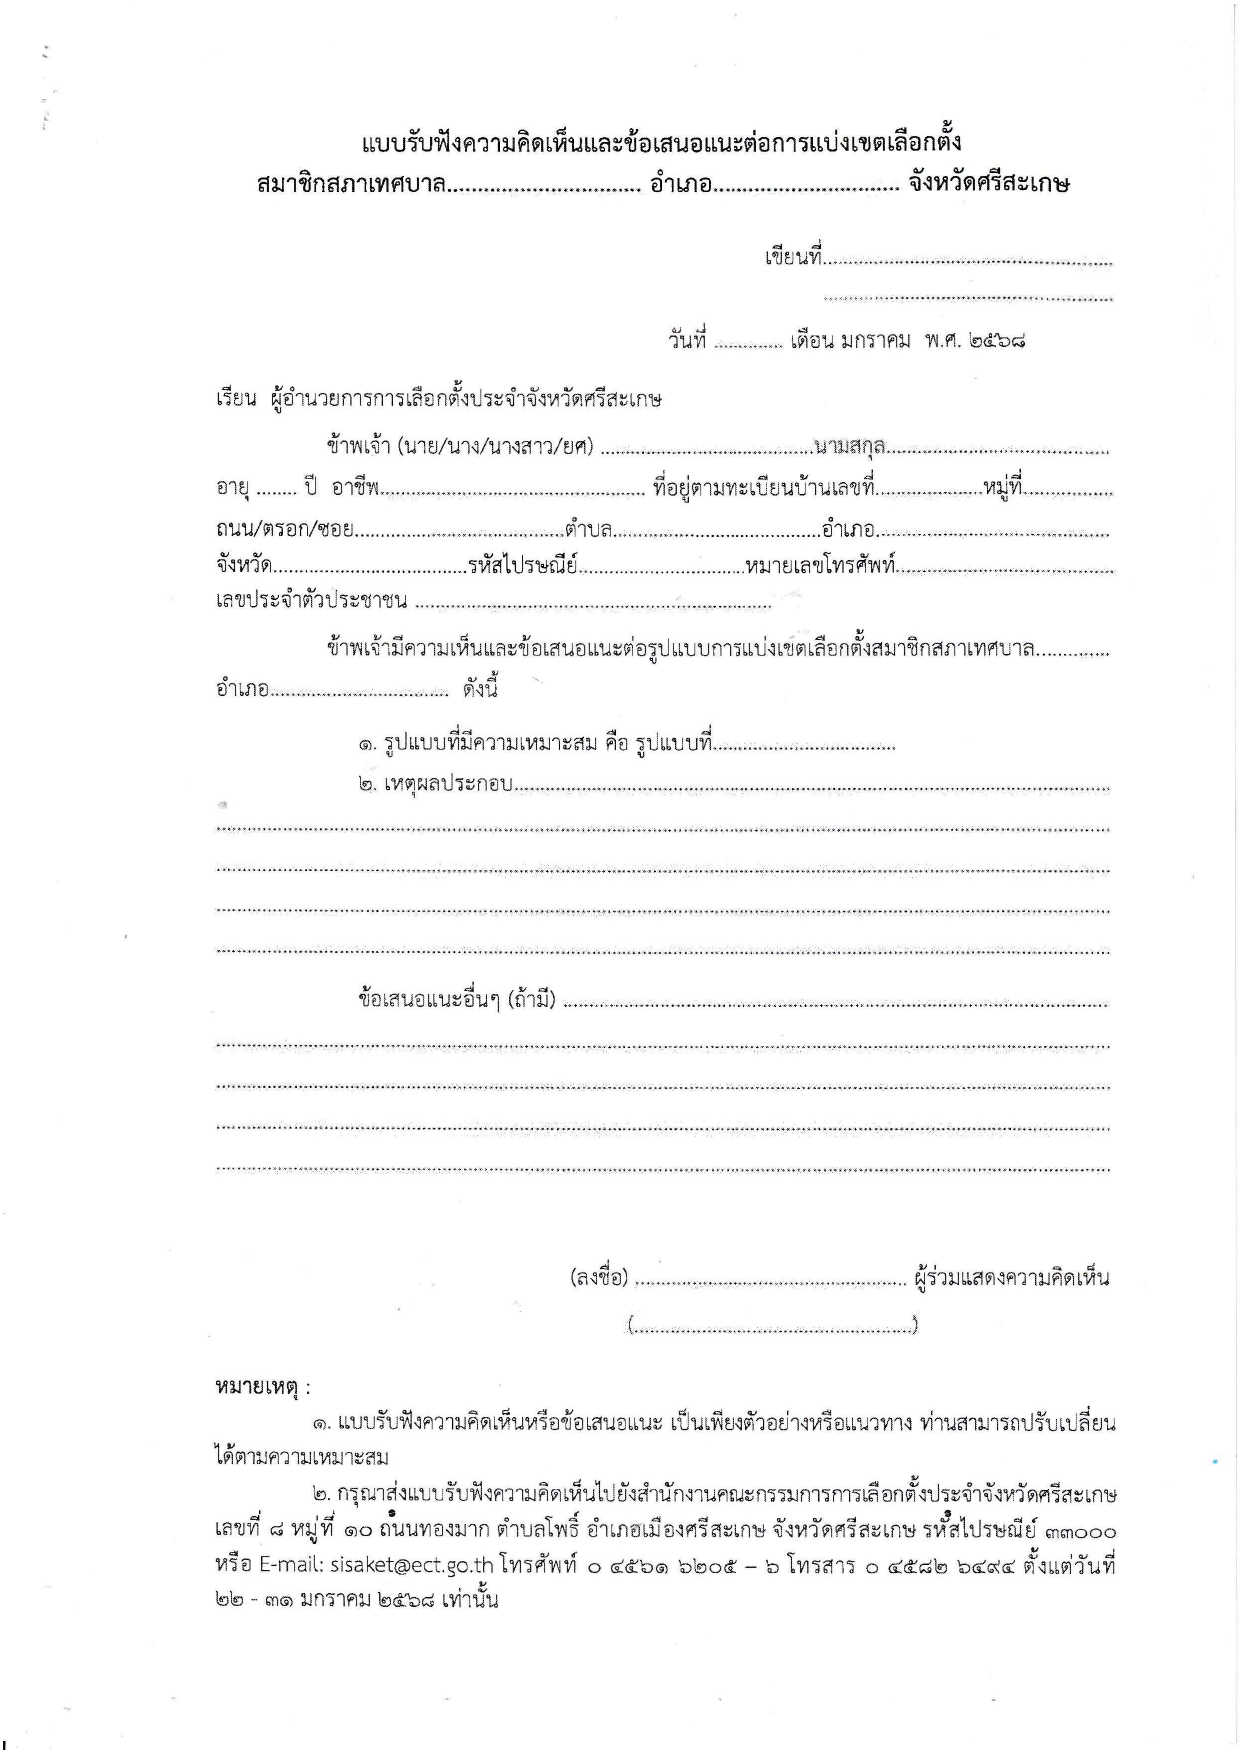 แบบรับฟังความคิดเห็นและข้อเสนอแนะต่อการแบ่งเขตเลือกตั้ง
สมาชิกสภาเทศบาล................................ อำเภอ............................... จังหวัดศรีสะเกษ
เขียนที่..........................................................
..........................................................
วันที่ .............. เดือน มกราคม พ.ศ. ๒๕๖๘
เรียน ผู้อำนวยการการเลือกตั้งประจำจังหวัดศรีสะเกษ
ข้าพเจ้า (นาย/นาง/นางสาว/ยศ) ..........................................นามสกุล............................................
อายุ ........ ปี อาชีพ..................................................... ที่อยู่ตามทะเบียนบ้านเลขที่.....................หมู่ที่..................
ถนน/ตรอก/ซอย..........................................ตำบล..........................................อำเภอ...............................................
จังหวัด.......................................รหัสไปรษณีย์.................................หมายเลขโทรศัพท์............................................
เลขประจำตัวประชาชน .......................................................................
ข้าพเจ้ามีความเห็นและข้อเสนอแนะต่อรูปแบบการแบ่งเขตเลือกตั้งสมาชิกสภาเทศบาล..............
อำเภอ................................... ดังนี้
๑. รูปแบบที่มีความเหมาะสม คือ รูปแบบที่....................................
๒. เหตุผลประกอบ.......................................................................................................................
...................................................................................................................................................................................
...................................................................................................................................................................................
...................................................................................................................................................................................
...................................................................................................................................................................................
ข้อเสนอแนะอื่นๆ (ถ้ามี) .............................................................................................................
...................................................................................................................................................................................
...................................................................................................................................................................................
...................................................................................................................................................................................
...................................................................................................................................................................................
(ลงชื่อ) ...................................................... ผู้ร่วมแสดงความคิดเห็น
(.......................................................)
หมายเหตุ :
๑. แบบรับฟังความคิดเห็นหรือข้อเสนอแนะ เป็นเพียงตัวอย่างหรือแนวทาง ท่านสามารถปรับเปลี่ยน
ได้ตามความเหมาะสม
๒. กรุณาส่งแบบรับฟังความคิดเห็นไปยังสำนักงานคณะกรรมการการเลือกตั้งประจำจังหวัดศรีสะเกษ
เลขที่ ๘ หมู่ที่ ๑๐ ถนนทองมาก ตำบลโพธิ์ อำเภอเมืองศรีสะเกษ จังหวัดศรีสะเกษ รหัสไปรษณีย์ ๓๓๐๐๐
หรือ E-mail: sisaket@ect.go.th โทรศัพท์ ๐ ๔๕๖๑ ๖๒๐๕ – ๖ โทรสาร ๐ ๔๕๘๒ ๖๔๙๔ ตั้งแต่วันที่
๒๒ - ๓๑ มกราคม ๒๕๖๘ เท่านั้น